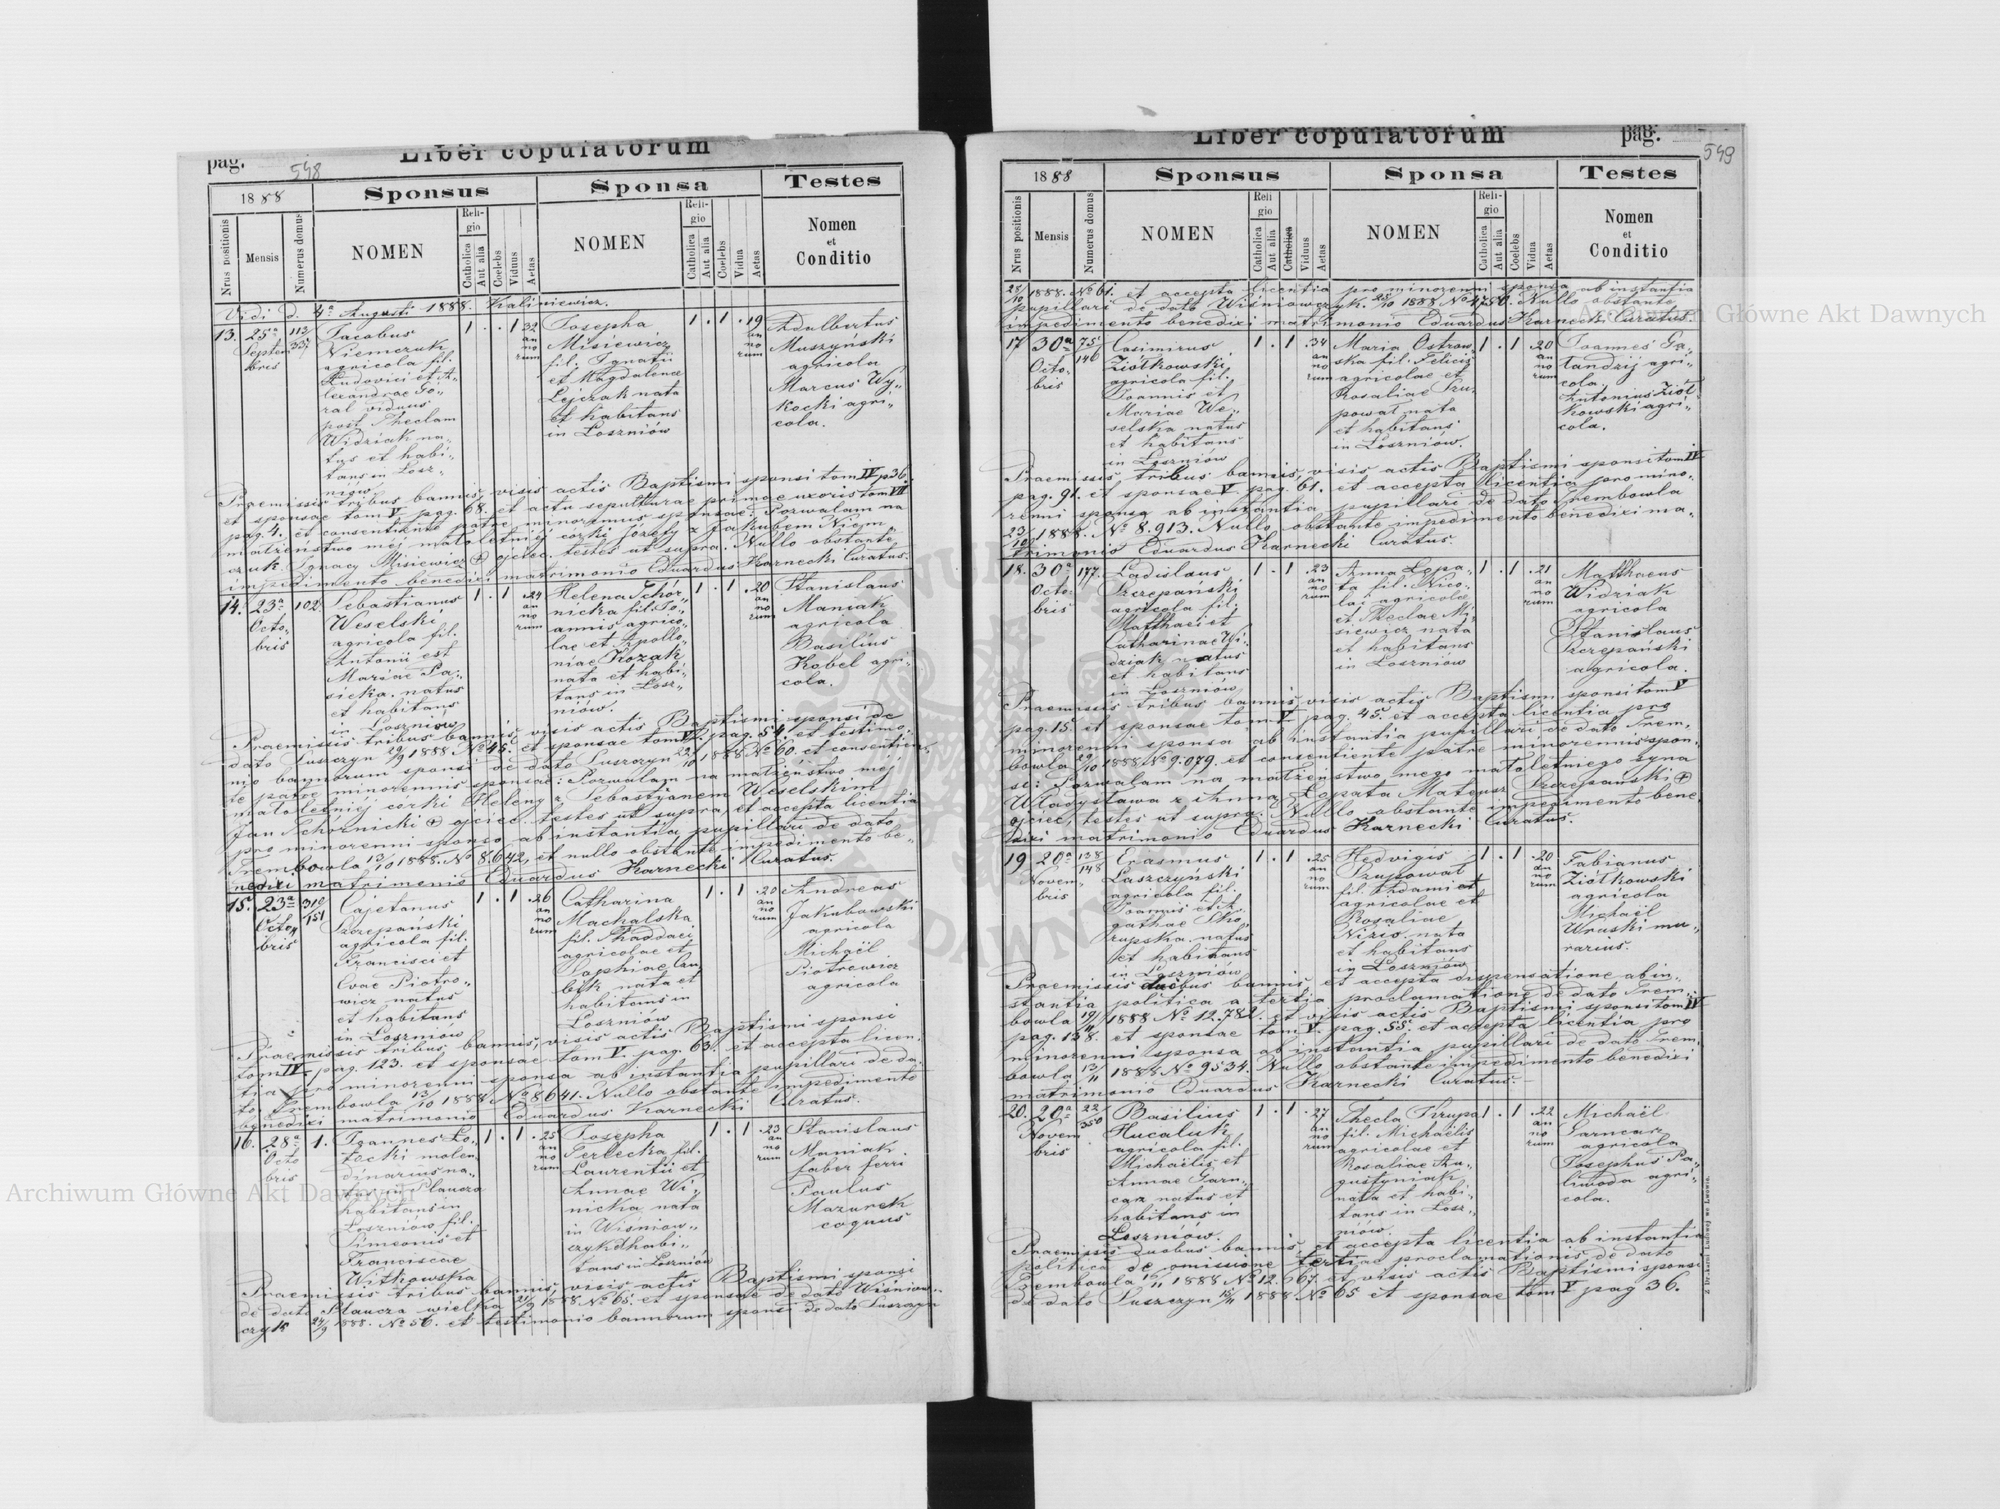 pag. 548
Liber copulatorum
1888
Sponsus
Sponsa
Testes
Nrus positionis
Mensis
Numerus domus
NOMEN
Religio
Catholica
Aut alia
Coelebs
Viduus
Aetas
NOMEN
Religio
Catholica
Aut alia
Coelebs
Vidua
Aetas
Nomen
et
Conditio
Vidi d. 4a Augusti 1888. Kaliniewicz.
13. 25a Septembris
112/337
Jacobus
Niemczuk
agricola fil.
Ludovici et A„
lexandrae Gó„
ral viduus
post Theclam
Widziak na„
tus et habi„
tans in Łosz„
niów
1 . . 1 32 annorum
Josepha
Misiewicz
fil. Ignatii
et Magdalenae
Lejczak nata
et habitans
in Łoszniów
1 . 1 . 19 annorum
Adalbertus
Muszyński
agricola
Marcus Wy„
kocki agri„
cola.
Praemissis tribus bannis, visis actis Baptismi sponsi tom IV p 36.
et sponsae tom V pag. 68. et actu sepulturae primae uxoris tom VII
pag. 4. et consentiente patre minorennis sponsae: Pozwalam na
małżeństwo mej małoletniej córki Józefy z Jakubem Niem„
czuk. Ignacy Misiewicz + ojciec. testes ut supra. Nullo obstante
impedimento benedixi matrimonio Eduardus Karnecki Curatus.
14. 23a Octobris
102
Sebastianus
Weselski
agricola fil.
Antonii est
Mariae Pa„
sicka. natus
et habitans
in Łoszniów
1 . 1 . 24 annorum
Helena Tchór„
nicka fil. Jo„
annis agrico„
lae et Apollo„
niae Kozak
nata et habi„
tans in Łosz„
niów.
1 . 1 . 20 annorum
Stanislaus
Maniak
agricola
Basilius
Kobel agri„
cola.
Praemissis tribus bannis, visis actis Baptismi sponsi de
dato Łuszczyn 29/9 1888 No 45. et sponsae tom V. pag. 54. et testimo„
nio bannorum sponsi de dato Łuszczyn 22/10 1888 No 60. et consentien„
te patre minorennis sponsae: Pozwalam na małżeństwo mej
małoletniej córki Heleny z Sebastyanem Weselskim
Jan Tchórnicki + ojciec. testes ut supra, et accepta licentia
pro minorenni sponso ab instantia pupillari de dato
Trembowla 13/10 1888. No 8.642, et nullo obstante impedimento be„
nedixi matrimonio Eduardus Karnecki Curatus.
15. 23a Octobris
310/151
Cajetanus
Szczepański
agricola fil.
Francisci et
Evae Piotro„
wicz natus
et habitans
in Łoszniów
1 . 1 . 26 annorum
Catharina
Machalska
fil. Thaddaei
agricolae et
Sophiae Cu„
bik nata et
habitans in
Łoszniów
1 . 1 . 20 annorum
Andreas
Jakubowski
agricola
Michaël
Piotrowicz
agricola
Praemissis tribus bannis, visis actis Baptismi sponsi
tom IV. pag. 123. et sponsae tom V. pag. 63. et accepta licen„
tia pro minorenni sponsa ab instantia pupillari de da„
to Trembowla 13/10 1888 No 8641. Nullo obstante impedimento
benedixi matrimonio Eduardus Karnecki Curatus.
16. 28a Octobris
1.
Joannes Ło„
tocki molen„
dinarius na„
tus in Płaucza
habitans in
Łoszniów fil.
Simeonis et
Franciscae
Witkowska
1 . 1 . 25 annorum
Josepha
Terlecka fil.
Laurentii et
Annae Wi„
nicka nata
in Wiśniow„
czyk habi„
tans in Łoszniów
1 . 1 . 23 annorum
Stanislaus
Maniak
faber ferri
Paulus
Mazurek
coquus
Praemissis tribus bannis, visis actis Baptismi sponsi
de dato Płaucza wielka 21/9 1888 No 65. et sponsae de dato Wiśniow„
czyk 24/9 1888. No 56. et testimonio bannorum sponsi de dato Łuszczyn
Liber copulatorum
pag. 549
1888
Sponsus
Sponsa
Testes
Nrus positionis
Mensis
Numerus domus
NOMEN
Religio
Catholica
Aut alia
Catholica
Viduus
Aetas
NOMEN
Religio
Catholica
Aut alia
Coelebs
Vidua
Aetas
Nomen
et
Conditio
28/10 1888. No 61. et accepta licentia pro minorenni sponsa ab instantia
pupillari de dato Wiśniowczyk. 25/10 1888 No 4780. Nullo obstante
impedimento benedixi matrimonio Eduardus Karnecki Curatus.
17 30a Octobris
75/146
Casimirus
Ziółkowski
agricola fil.
Joannis et
Mariae We„
selska natus
et habitans
in Łoszniów
1 . 1 . 34 annorum
Maria Ostrow„
ska fil. Felicis
agricolae et
Rosaliae Szu„
pował nata
et habitans
in Łoszniów.
1 . 1 . 20 annorum
Joannes Ga„
landzij agri„
cola.
Antonius Ziół„
kowski agri„
cola.
Praemissis, tribus bannis, visis actis Baptismi sponsi tom IV
pag. 91. et sponsae V. pag. 61. et accepta licentia pro mino„
renni sponsa ab instantia pupillari de dato Trembowla
23/10 1888. No 8.913. Nullo obstante impedimento benedixi ma„
trimonio Eduardus Karnecki Curatus.
18. 30a Octobris
177.
Ladislaus
Szczepański
agricola fil.
Matthaei et
Catharinae Wi„
dziak natus
et habitans
in Łoszniów
1 . 1 . 23 annorum
Anna Łopa„
ta fil. Nico„
lai agricolae
et Theclae Mi„
siewicz nata
et habitans
in Łoszniów
1 . 1 . 21 annorum
Matthaeus
Widziak
agricola
Stanislaus
Szczepański
agricola.
Praemissis tribus bannis, visis actis Baptismi sponsi tom V
pag. 15. et sponsae tom V. pag. 45. et accepta licentia pro
minorenni sponsa ab instantia pupillari de dato Trem„
bowla 29/10 1888 No 9.079. et consentiente patre minorennis spon„
si: Pozwalam na małżeństwo mego małoletniego syna
Władysława z Anną Łopata Mateusz Szczepański +
ojciec, testes ut supra. Nullo obstante impedimento bene„
dixi matrimonio Eduardus Karnecki Curatus.
19 20a Novembris
138/148
Erasmus
Łaszczyński
agricola fil.
Joannis et A„
gathae Sko„
rupska natus
et habitans
in Łoszniów
1 . 1 . 25 annorum
Hedvigis
Szupował
fil. Adami et
agricolae et
Rosaliae
Nizio. nata
et habitans
in Łoszniów
1 . 1 . 20 annorum
Fabianus
Ziółkowski
agricola
Michaël
Wruski mu„
rarius.
Praemissis duobus bannis et accepta dispensatione ab in„
stantia politica a tertia proclamatione de dato Trem„
bowla 19/11 1888 No 12.782. et visis actis Baptismi sponsi tom IV
pag. 138. et sponsae tom V. pag. 55. et accepta licentia pro
minorenni sponsa ab instantia pupillari de dato Trem„
bowla 13/11 1888 No 9534. Nullo obstante impedimento benedixi
matrimonio Eduardus Karnecki Curatus.
20. 20a Novembris
22/350
Basilius
Hucaluk
agricola fil.
Michaëlis et
Annae Garn„
carz natus et
habitans in
Łoszniów.
1 . 1 . 27 annorum
Thecla Chrupa
fil. Michaëlis
agricolae et
Rosaliae Au„
gustyniak
nata et habi„
tans in Łosz„
niów.
1 . 1 . 22 annorum
Michaël
Garncarz
agricola
Josephus Pa„
liwoda agri„
cola.
Praemissis duobus bannis, et accepta licentia ab instantia
politica de omissione tertiae proclamationis de dato
Trembowla 16/11 1888 No 12.667. et visis actis Baptismi sponsi
de dato Łuszczyn 15/11 1888 No 65 et sponsae tom V pag 36.
Z Drukarni Ludowej we Lwowie.
Archiwum Główne Akt Dawnych
Archiwum Główne Akt Dawnych